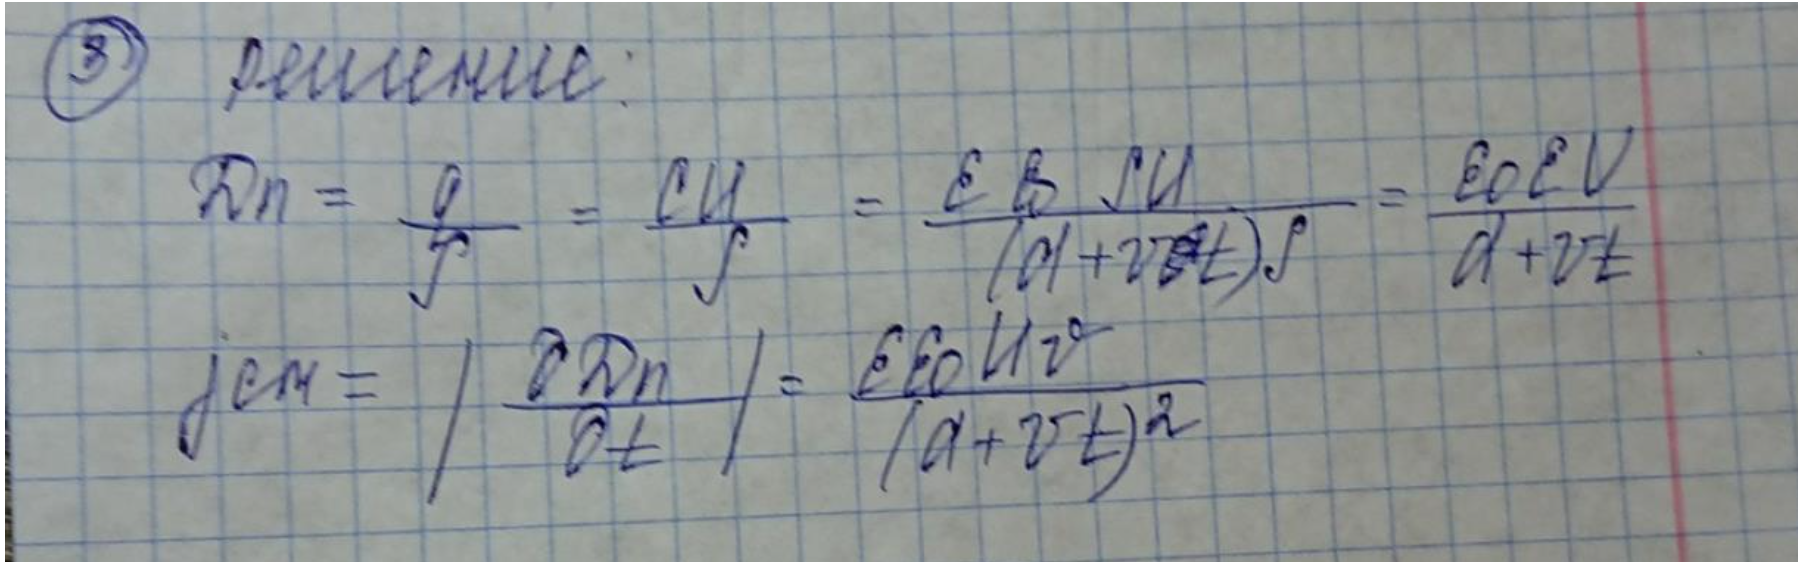 ③ Решение:
Dn = q/S = CU/S = εε₀SU/((d+vt)S) = ε₀εU/(d+vt)
jсм = |∂Dn/∂t| = εε₀Uv/(d+vt)²